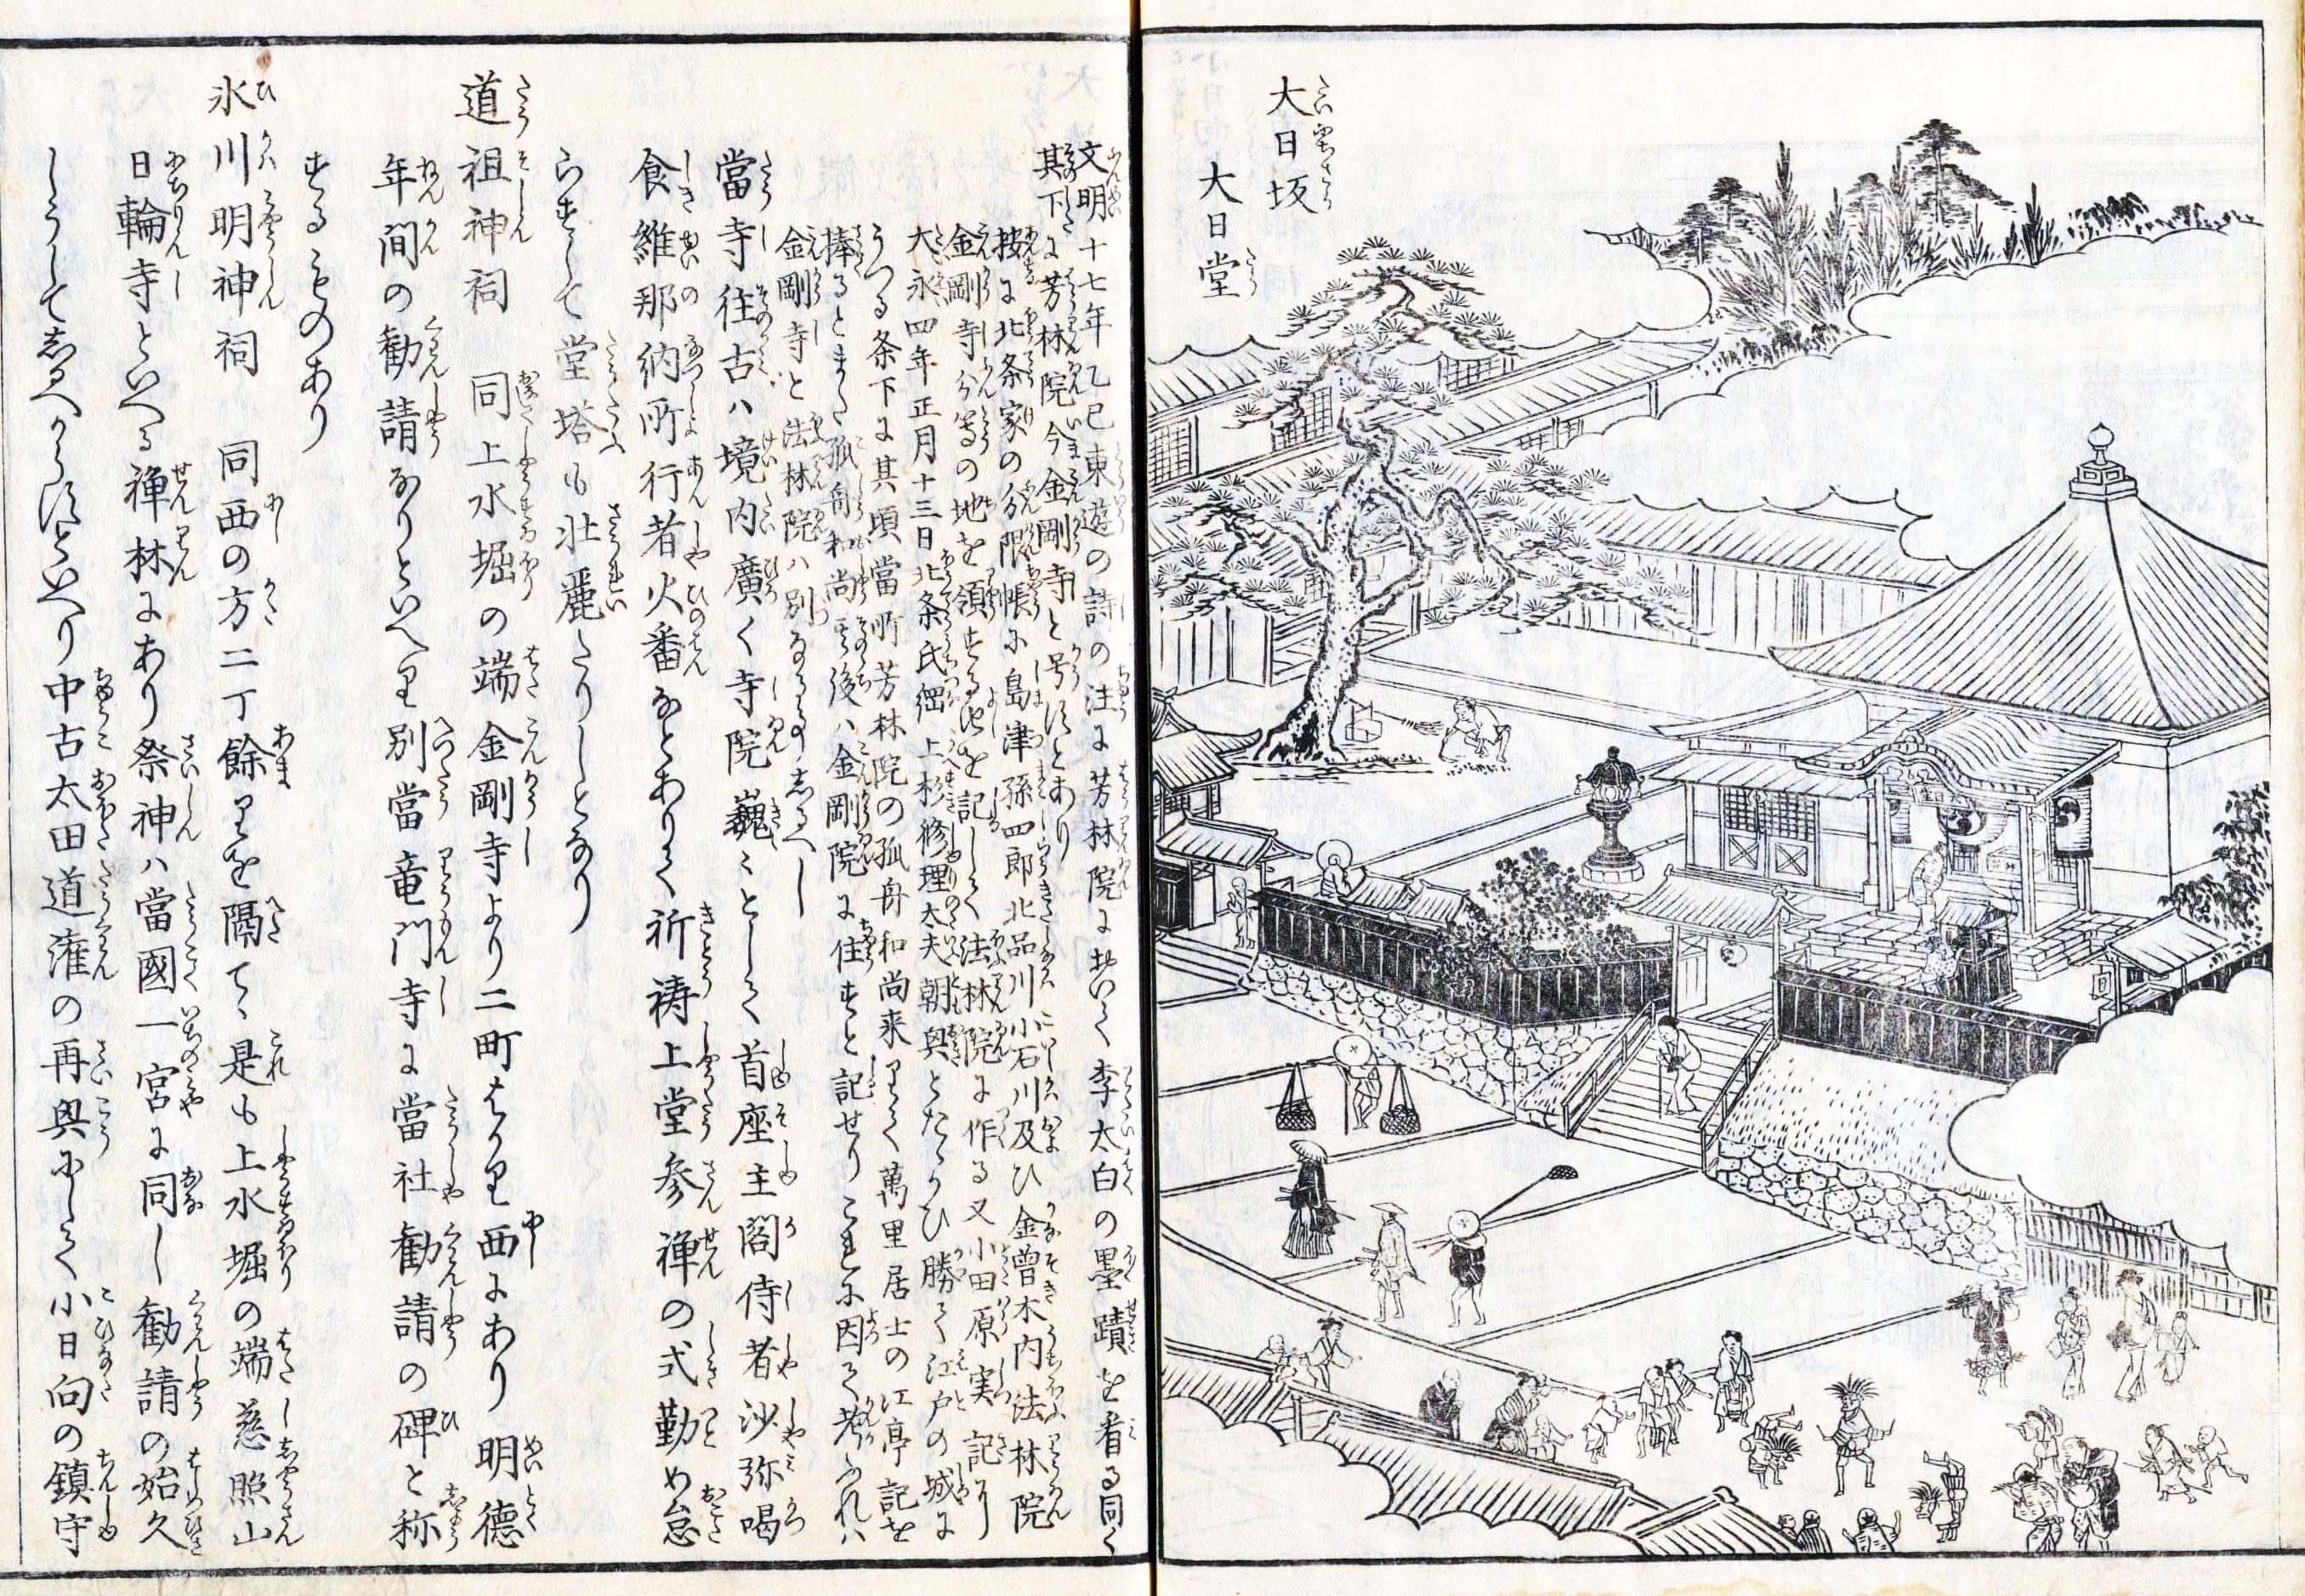 大日坂
大日堂
文明十七年乙巳東遊の詩の注に芳林院に於いて李太白の墨蹟を看る同く
其下に芳林院今金剛寺と号すとあり
按に北条家の分限帳に島津孫四郎北品川小石川及ひ金曾木内法林院
金剛寺分等の地を領する由を記して法林院に作る又小田原実記に
大永四年正月十三日北条氏綱上杉修理太夫朝興とたゝかひ勝て江戸の城に
うつる条下に其頃當所芳林院の孤舟和尚来りて萬里居士の江亭記を
捧るとまた孤舟和尚其後ハ金剛院に住すと記せりこれに因て考ふれハ
金剛寺と法林院ハ別なる事しるへし
當寺往古ハ境内廣く寺院巍々として首座主閣侍者沙弥喝
食維那納所行者火番なとありて祈祷上堂参禅の式勤め怠
らすして堂塔も壮麗たりしとなり
道祖神祠　同上水堀の端金剛寺より二町はかり西にあり明徳
年間の勧請なりといへり別當竜門寺に當社勧請の碑と称
するものあり
氷川明神祠　同西の方二丁餘りを隔てゝ是も上水堀の端慈照山
日輪寺といへる禅林にあり祭神ハ當國一宮に同し勧請の始久
しうしてしるへからすといへり中古太田道潅の再興にして小日向の鎮守